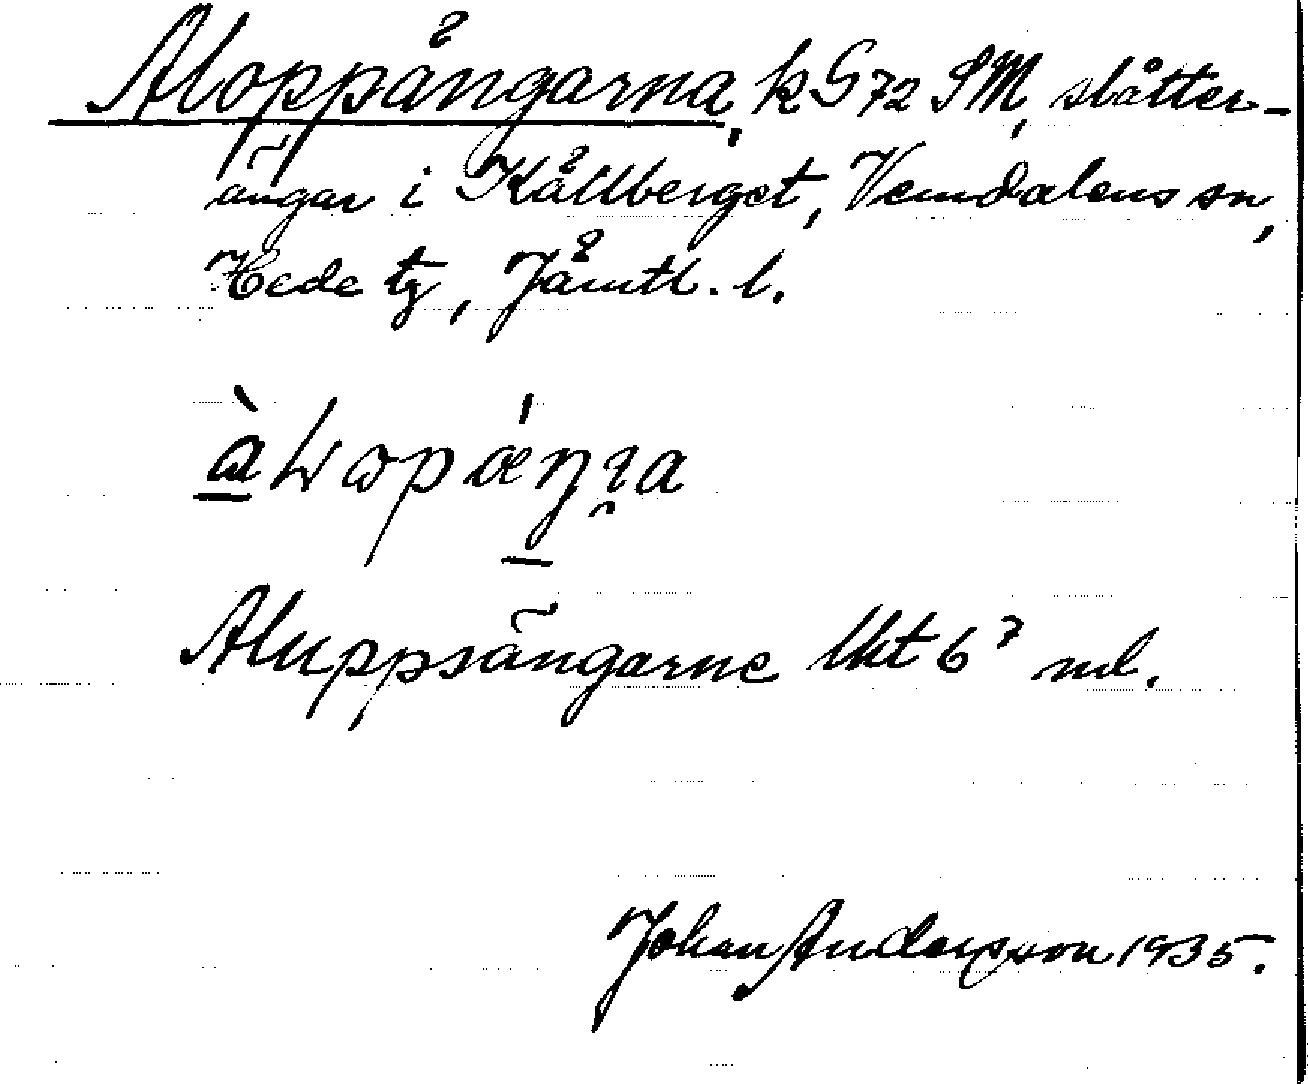 Aloppängarna, k G 72 SM, slåtter-
ängar i Källberget, Vemdalens sn,
Hede tg, Jämtl. l.
Aluppsängarne lkt 6⁷ nul.
Johan Andersson 1935.